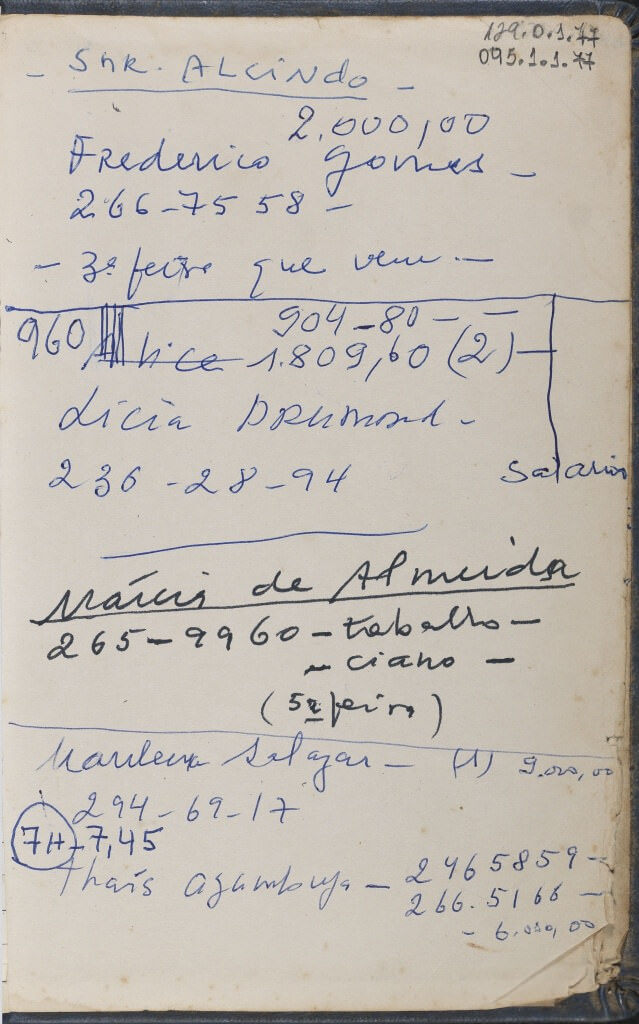 129.0.1.77
095.1.1.77
- SNR. ALCINDO -
2.000,00
Frederico Gomes -
266-75 58 -
- 3ª feira que vem -
904-80 - -
960 Alice 1.809,60 (2) -
Licia DRUMOND -
236 - 28 - 94
Salarios
Márcia de Almeida
265-9960 - trabalho -
- ciano -
(5ª feira)
Marilena Salazar - (1) 9.000,00
294-69-17
7H - 7,45
Thaís Azambuja - 2465859 -
266.5166 -
- 6.000,00